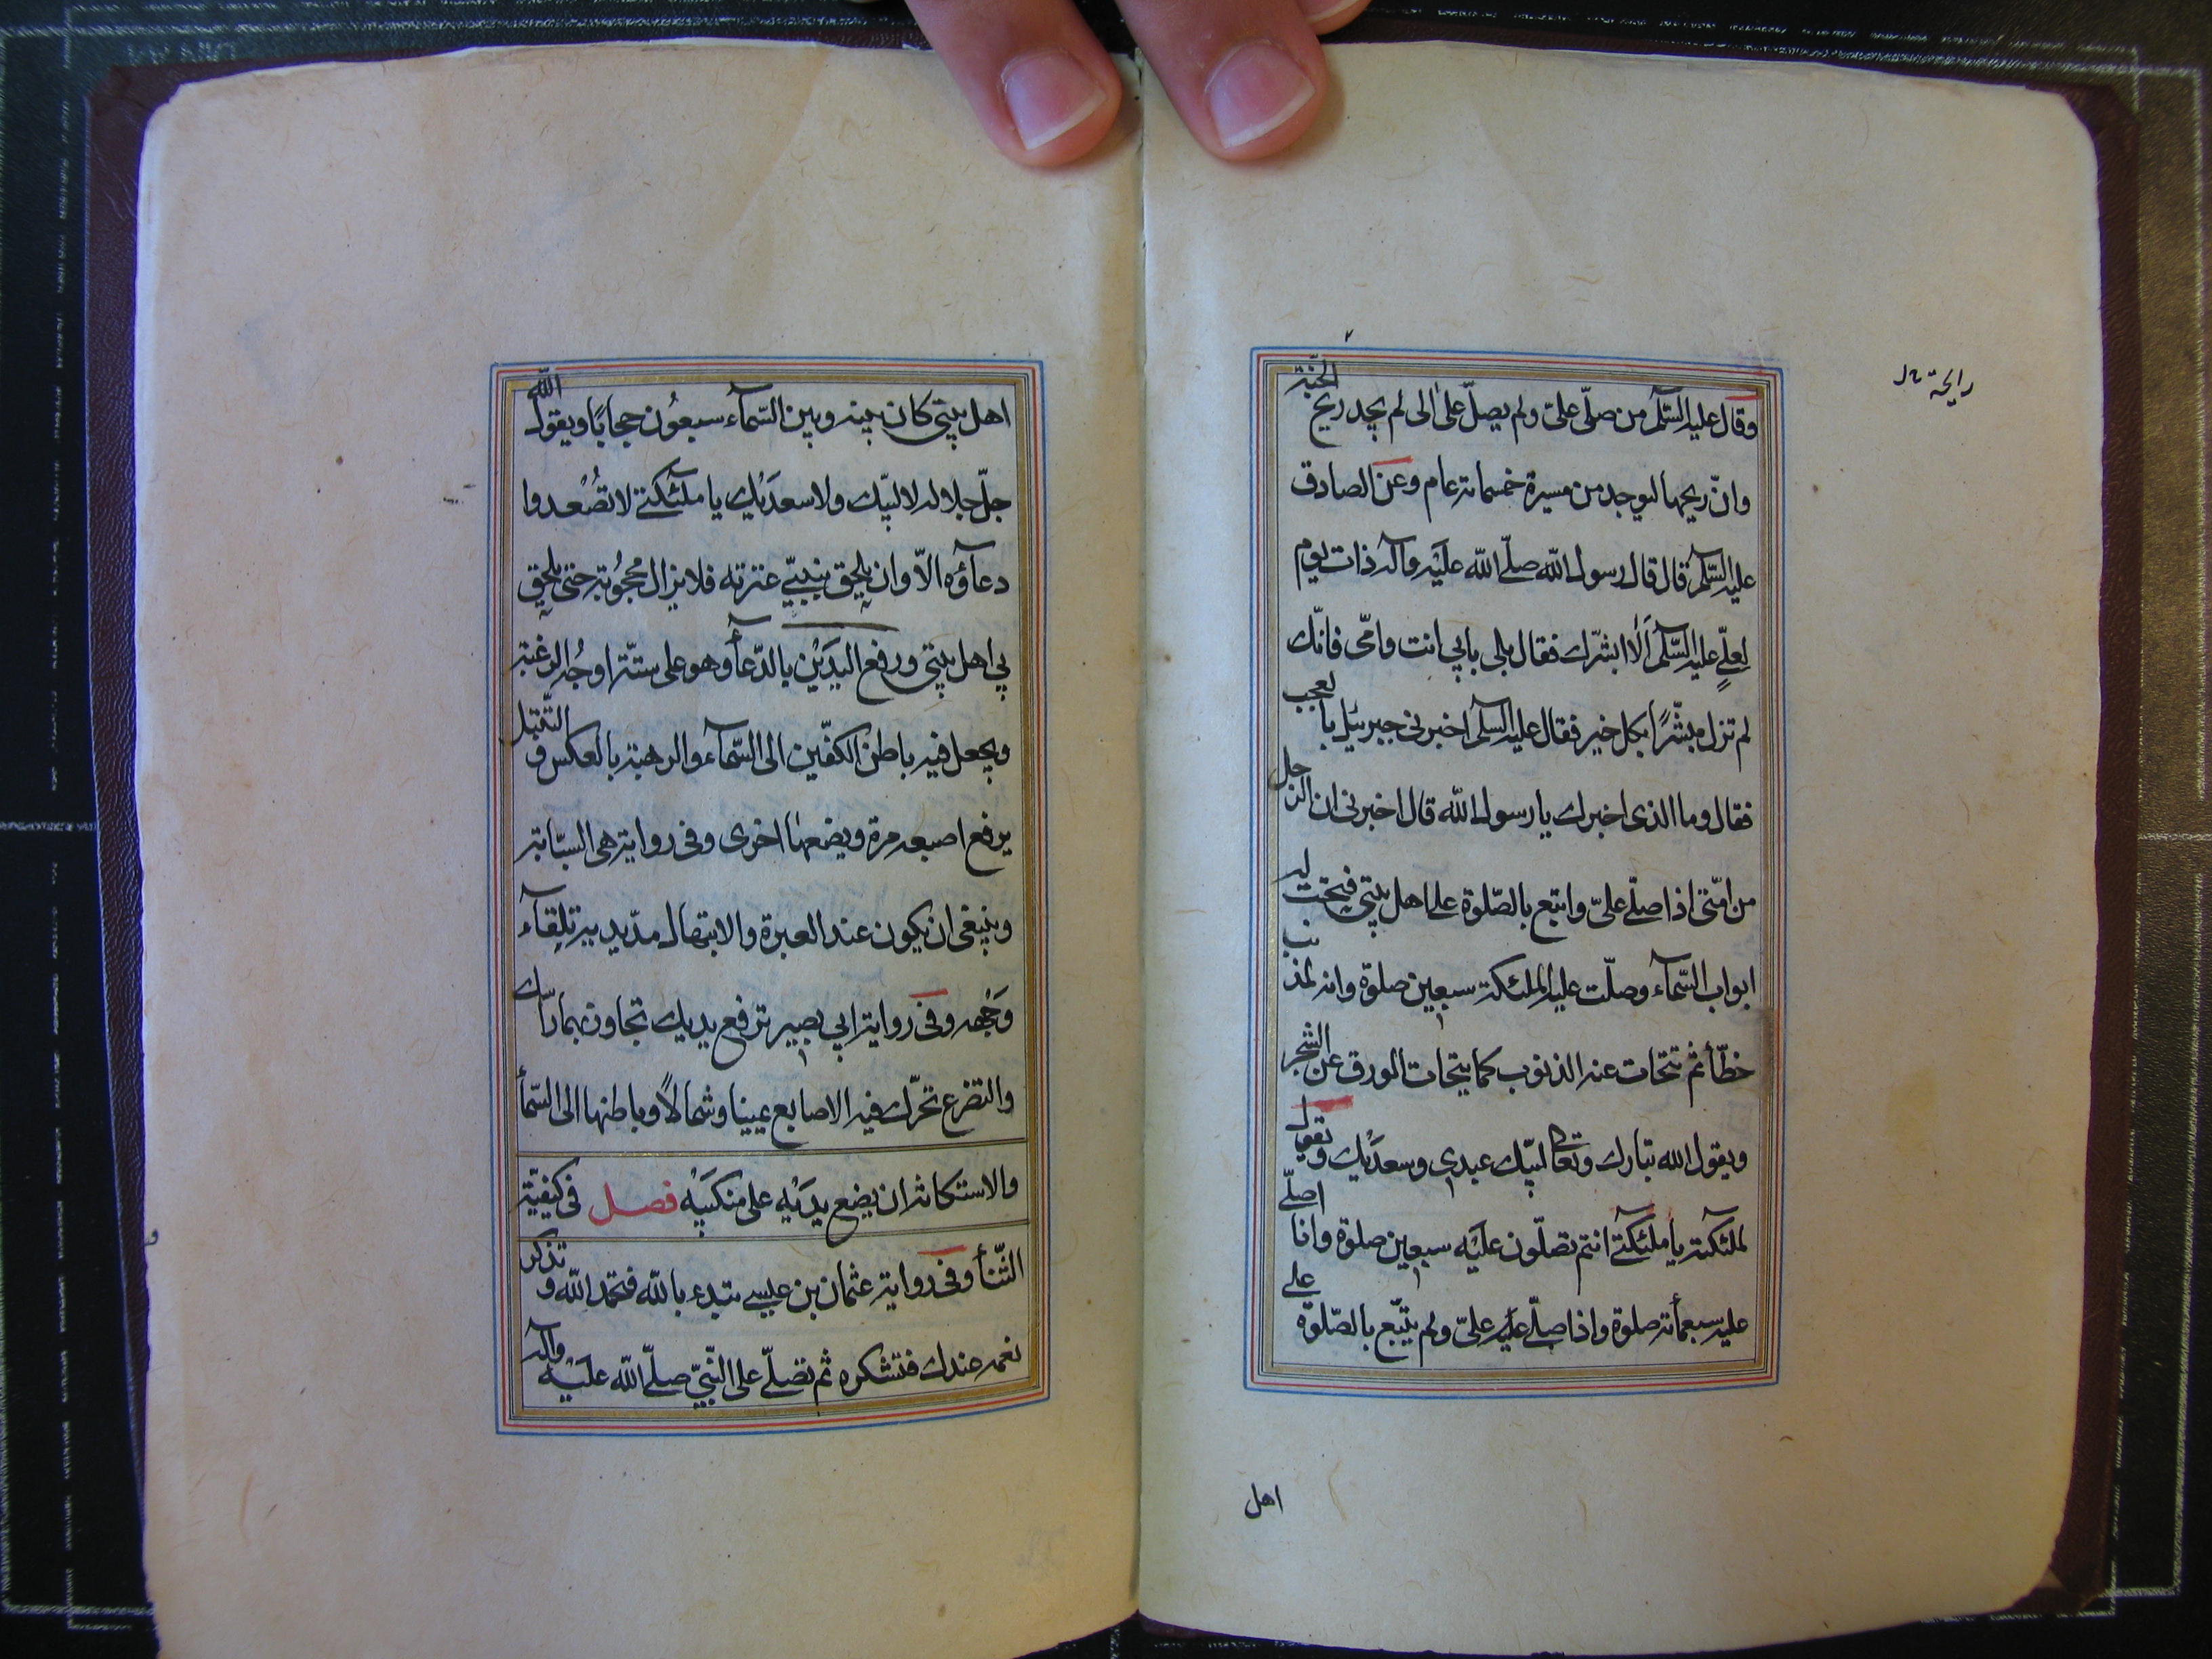 وقال عليه السّلم من صلّى علىّ ولم يصلّ على الى لم يجد ريح الجنّة
رايحة خ ل
وانّ ريحها ليوجد من مسيرة خمسمائة عام وعن الصادق
عليه السّلم قال قال رسول الله صلّى الله عليه وآله ذات يوم
لعلىّ عليه السّلم ألا ابشّرك فقال بلى بابي انت وامّى فانّك
لم تزل مبشّرًا بكل خير فقال عليه السلم اخبرنى جبرئيل بالعجب
فقال وما الذى اخبرك يا رسول الله قال اخبرنى ان الرجل
من امّتى اذا صلّى علىّ واتبع بالصّلوة على اهل بيتي فتحت له
ابواب السّمآء وصلّت عليه الملئكة سبعين صلوة وانه لمذنب
خطّأ ثم تتحات عنه الذنوب كما يتحات الورق عن الشجر
ويقول الله تبارك وتعالى لبيّك عبدى وسعدَيك ويقول
لملئكته يا ملئكتى انتم تصلّون عليه سبعين صلوة وانا اصلّى
عليه سبعمائة صلوة واذا صلّى علىّ ولم يتبع بالصّلوة على
اهل
اهل بيتي كان بينه وبين السّمآء سبعون حجابًا ويقول الله
جلّ جلاله لا لبيّك ولا سعدَيك يا ملئكتى لا تصُعدوا
دعآؤه الاّ وان يلحق بنبيّى عترته فلا يزال محجوبة حتى يلحق
بي اهل بيتي ورفع اليدَيْن بالدّعأ وهو على ستّة اوجُه الرغبة
ويجعل فيه باطن الكفّين الى السّمآء والرهبة بالعكس و التّبتل
يرفع اصبعه مرة ويضعها اخرى وفى رواية هى السبّابة
وينبغى ان يكون عند العبرة والابتهال مدّ يديه تلقآء
وَجْهه وفى رواية ابي بصير ترفع يديك تجاوز بهما رأسك
والتضرع تحرّك فيه الاصابع يمينا وشمالاً وباطنها الى السّمأ
والاستكانة ان يضع يدَيه على منكبيه فصل فى كيفيّة
الثّنأ وفى رواية عثمان بن عيسى تبدء بالله فتحمد الله و تذكر
نعمه عندك فتشكره ثم تصلّى على النّبيّ صلّى الله عليه وآله